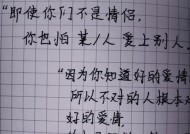 “即使你们不是情侣.
你也怕某/人爱上别人
“因为你知道好的爱情
所以不对的人根本
好的爱情